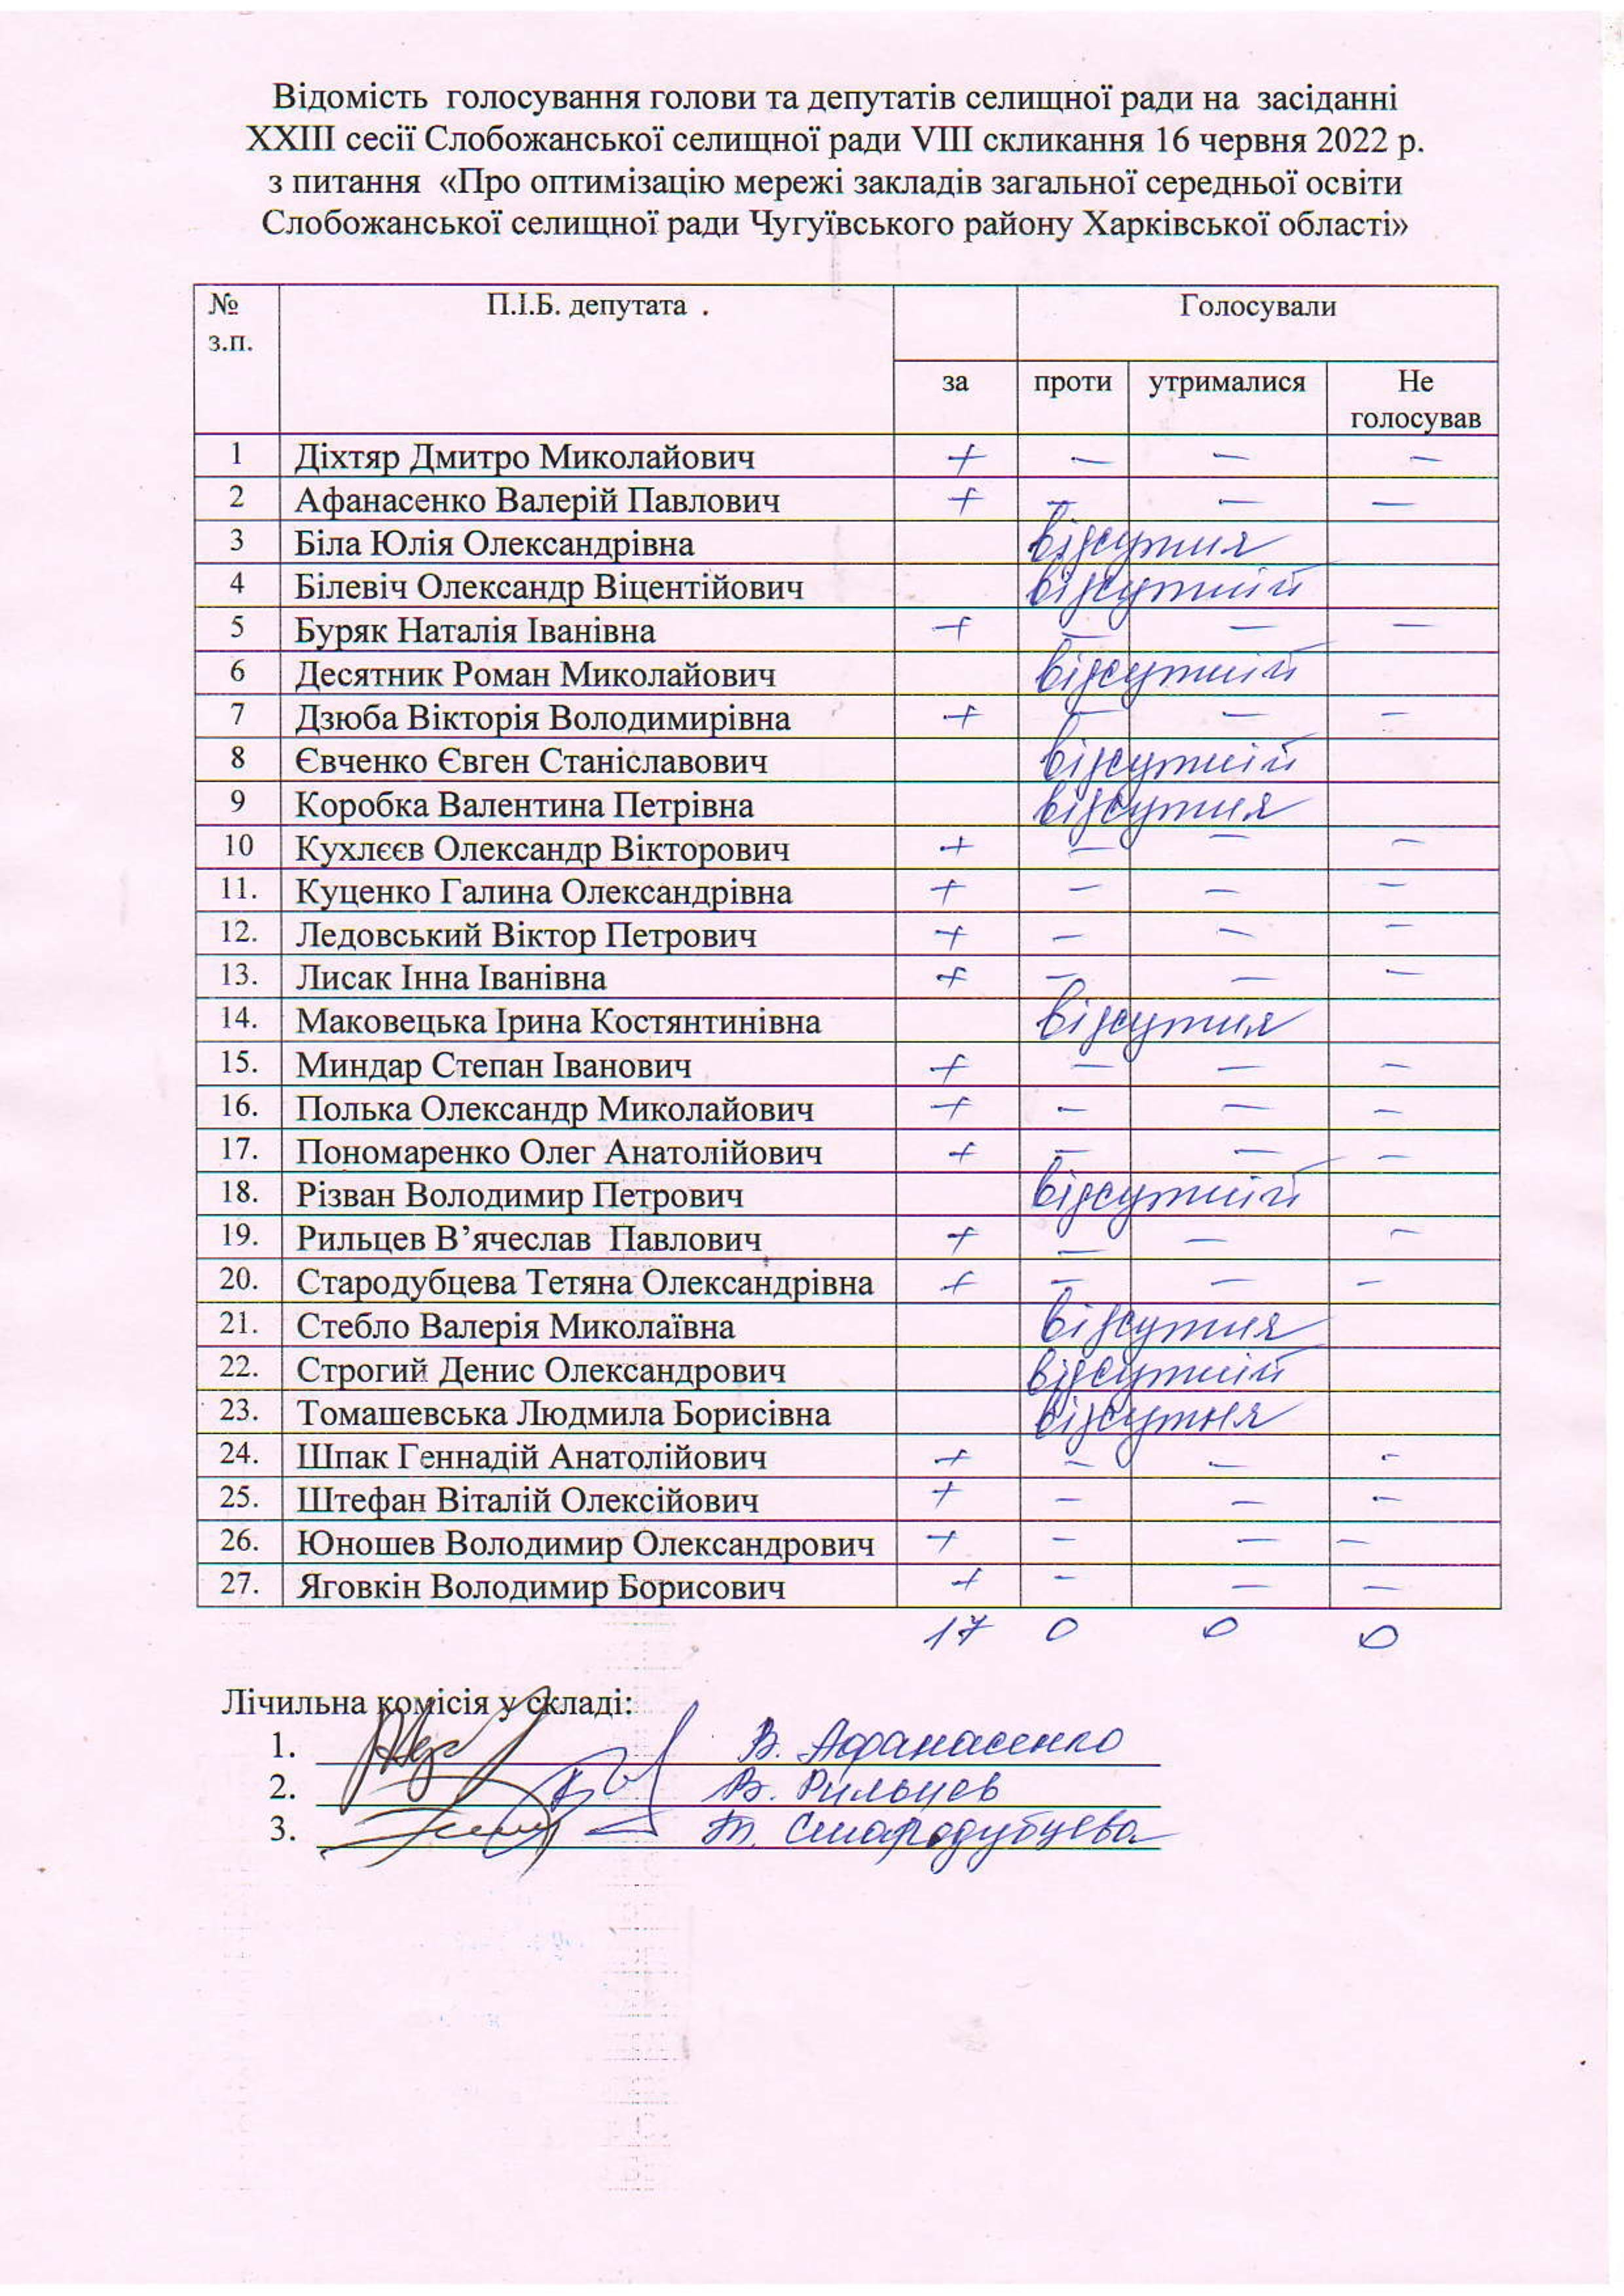 Відомість голосування голови та депутатів селищної ради на засіданні
XXIII сесії Слобожанської селищної ради VIII скликання 16 червня 2022 р.
з питання «Про оптимізацію мережі закладів загальної середньої освіти
Слобожанської селищної ради Чугуївського району Харківської області»
№ з.п. П.І.Б. депутата . Голосували
за проти утрималися Не голосував
1 Діхтяр Дмитро Миколайович + — — —
2 Афанасенко Валерій Павлович + — — —
3 Біла Юлія Олександрівна відсутня
4 Білевіч Олександр Віцентійович відсутній
5 Буряк Наталія Іванівна + — — —
6 Десятник Роман Миколайович відсутній
7 Дзюба Вікторія Володимирівна + — — —
8 Євченко Євген Станіславович відсутній
9 Коробка Валентина Петрівна відсутня
10 Кухлєєв Олександр Вікторович + — — —
11. Куценко Галина Олександрівна + — — —
12. Ледовський Віктор Петрович + — — —
13. Лисак Інна Іванівна + — — —
14. Маковецька Ірина Костянтинівна відсутня
15. Миндар Степан Іванович + — — —
16. Полька Олександр Миколайович + — — —
17. Пономаренко Олег Анатолійович + — — —
18. Різван Володимир Петрович відсутній
19. Рильцев В’ячеслав Павлович + — — —
20. Стародубцева Тетяна Олександрівна + — — —
21. Стебло Валерія Миколаївна відсутня
22. Строгий Денис Олександрович відсутній
23. Томашевська Людмила Борисівна відсутня
24. Шпак Геннадій Анатолійович + — — —
25. Штефан Віталій Олексійович + — — —
26. Юношев Володимир Олександрович + — — —
27. Яговкін Володимир Борисович + — — —
17 0 0 0
Лічильна комісія у складі:
1. В. Афанасенко
2. В. Рильцев
3. Т. Стародубцева